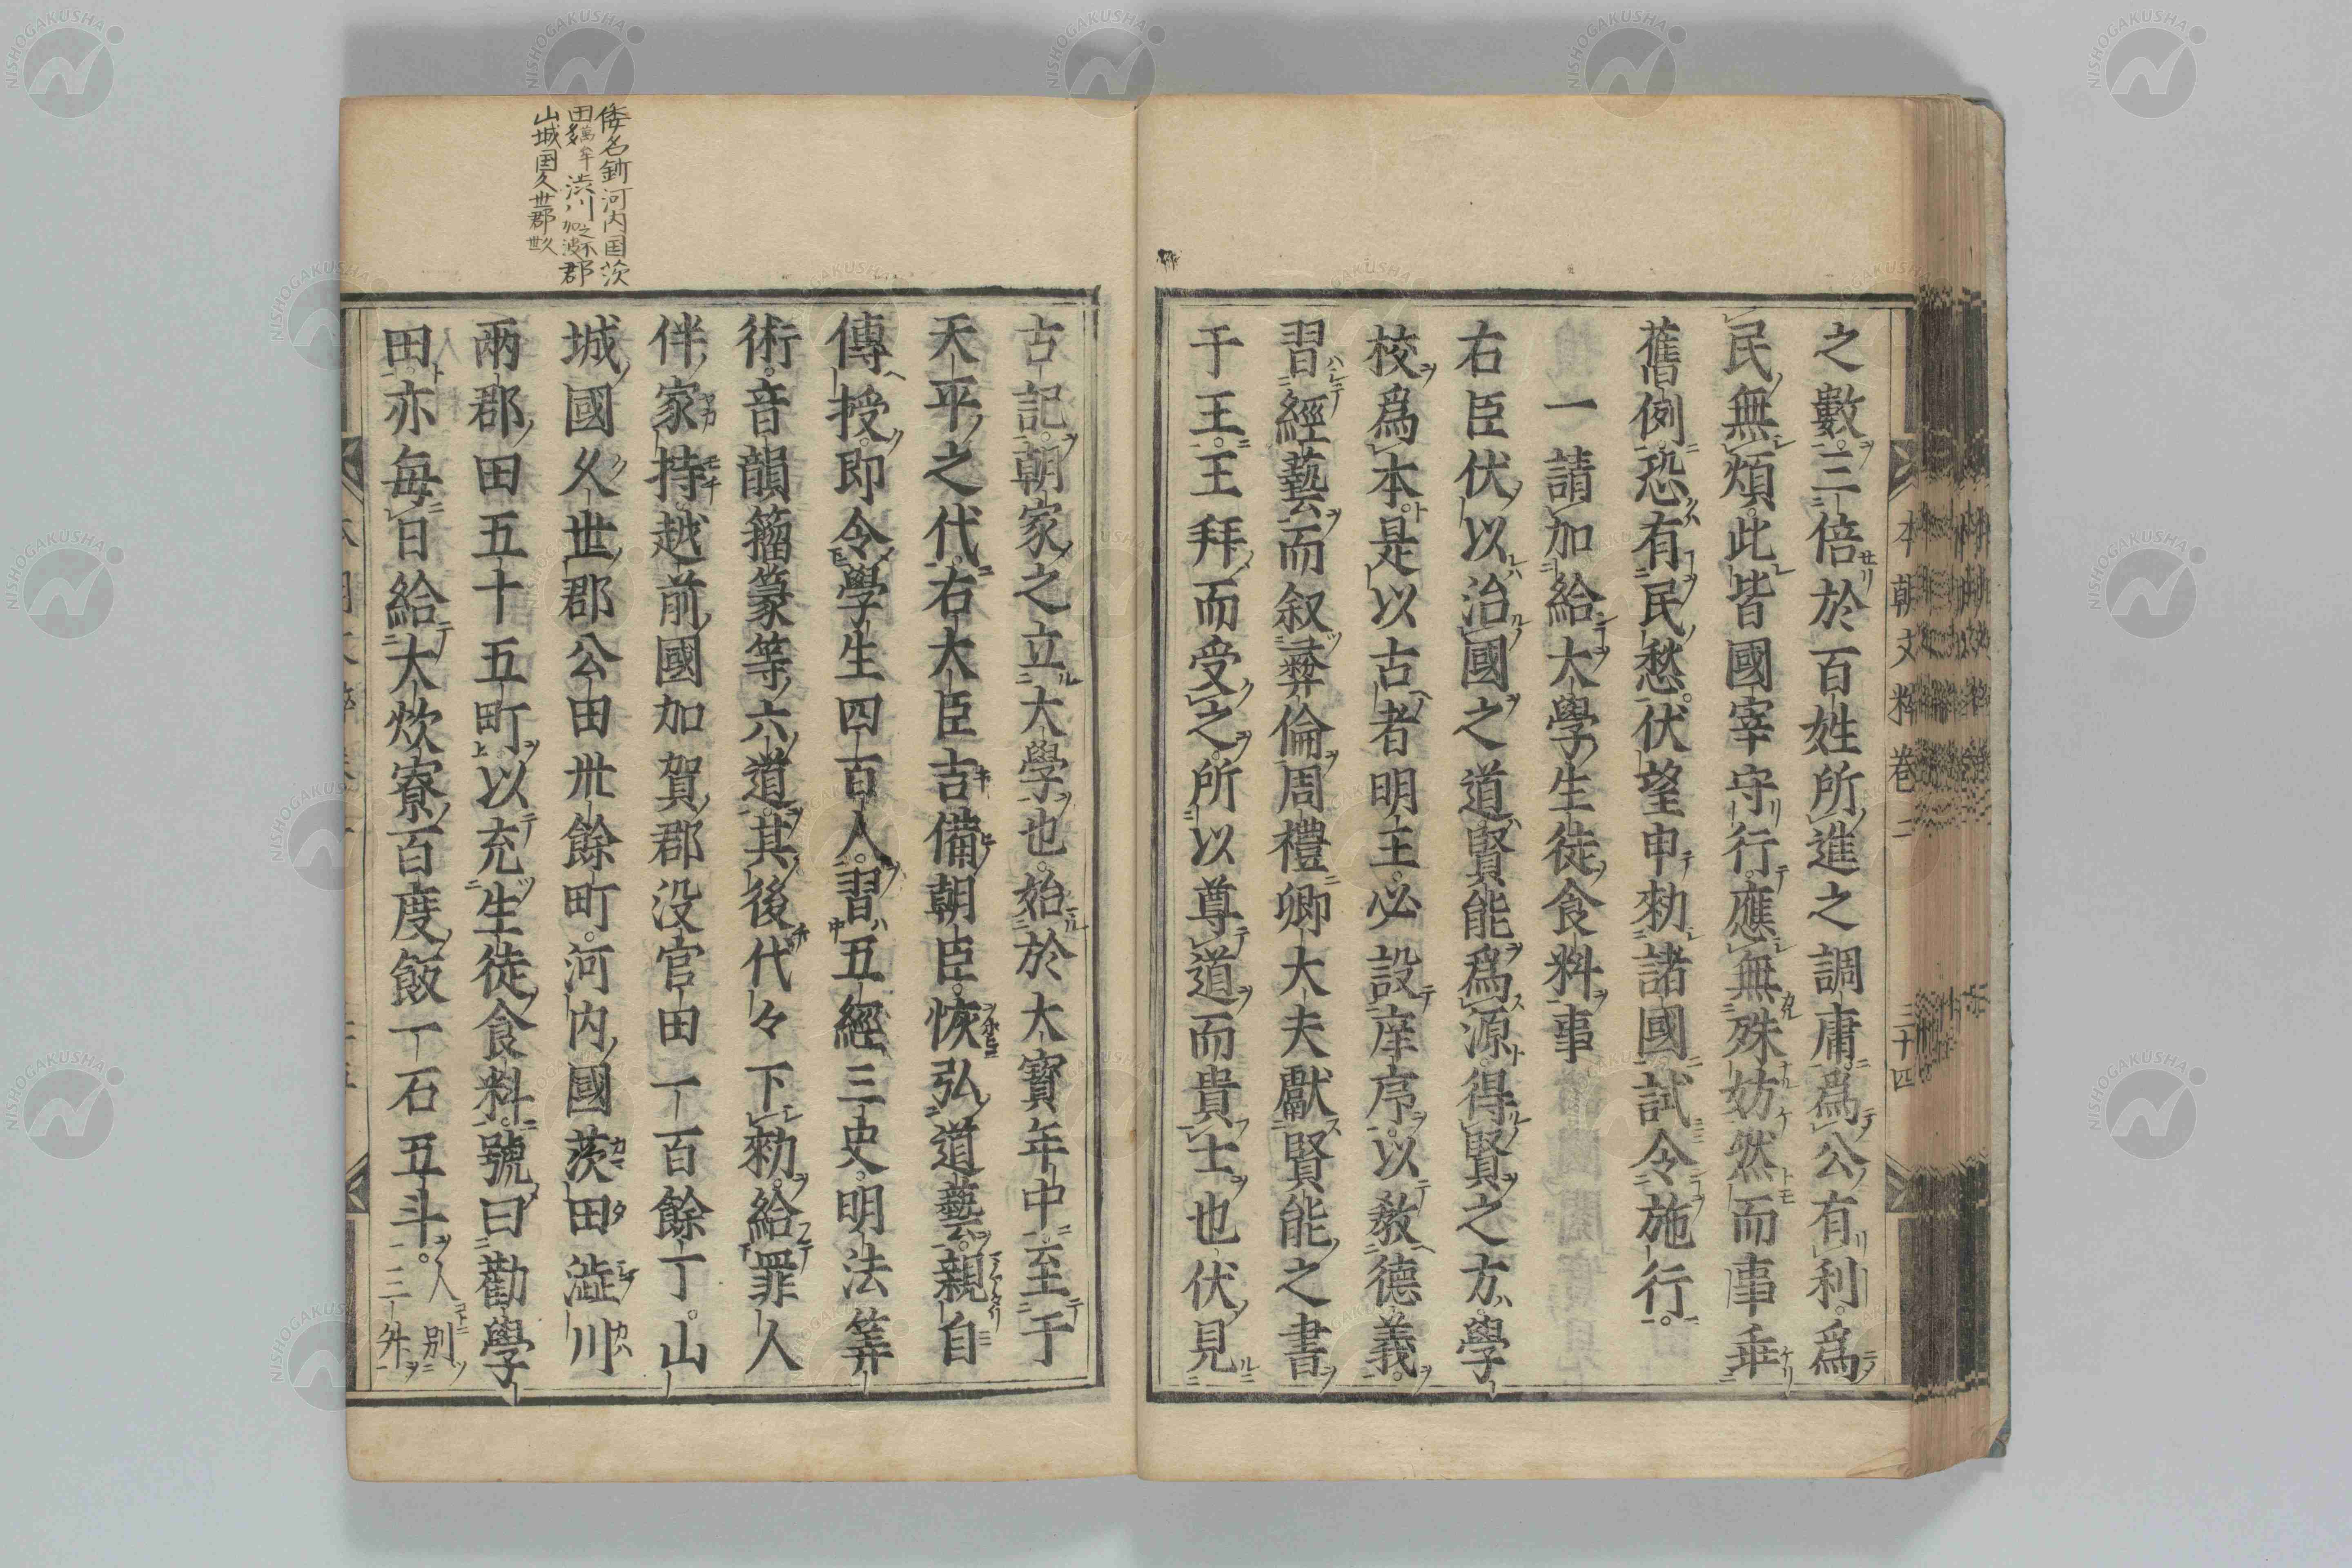 之數。三倍於百姓所進之調庸。爲公有利。爲
民無煩。此皆國宰守行。應無殊妨。然而事乖
舊例。恐有民愁。伏望申勑諸國。試令施行。
一請加給大學生徒食料事
右臣伏以。治國之道。賢能爲源。得賢之方。學
校爲本。是以古者明主。必設庠序。以敎德義。
習經藝而叙彝倫。周禮卿大夫獻賢能之書
于王。王拜而受之。所以尊道而貴士也。伏見
本朝文粹卷二 三十四
古記。朝家之立大學也。始於大寶年中。至于
天平之代。右大臣吉備朝臣。恢弘道藝。親自
傳授。即令學生四百人。習五經三史。明法筭
術。音韻籀篆等六道。其後代々下勑。給罪人
伴家持越前國加賀郡没官田一百餘丁。山
城國久世郡公田卅餘町。河内國茨田澁川
兩郡田五十五町。以充生徒食料。號曰勸學
田。亦每日給大炊寮百度飯一石五斗。人別三升
倭名鈔河内国茨
田萬牟多渋川之不加波郡
山城国久世郡久世
NISHOGAKUSHA